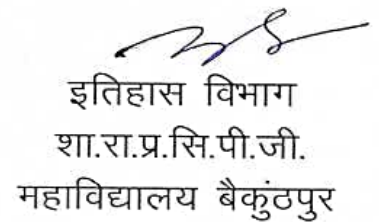 इतिहास विभाग
शा.रा.प्र.सि.पी.जी.
महाविद्यालय बैकुंठपुर